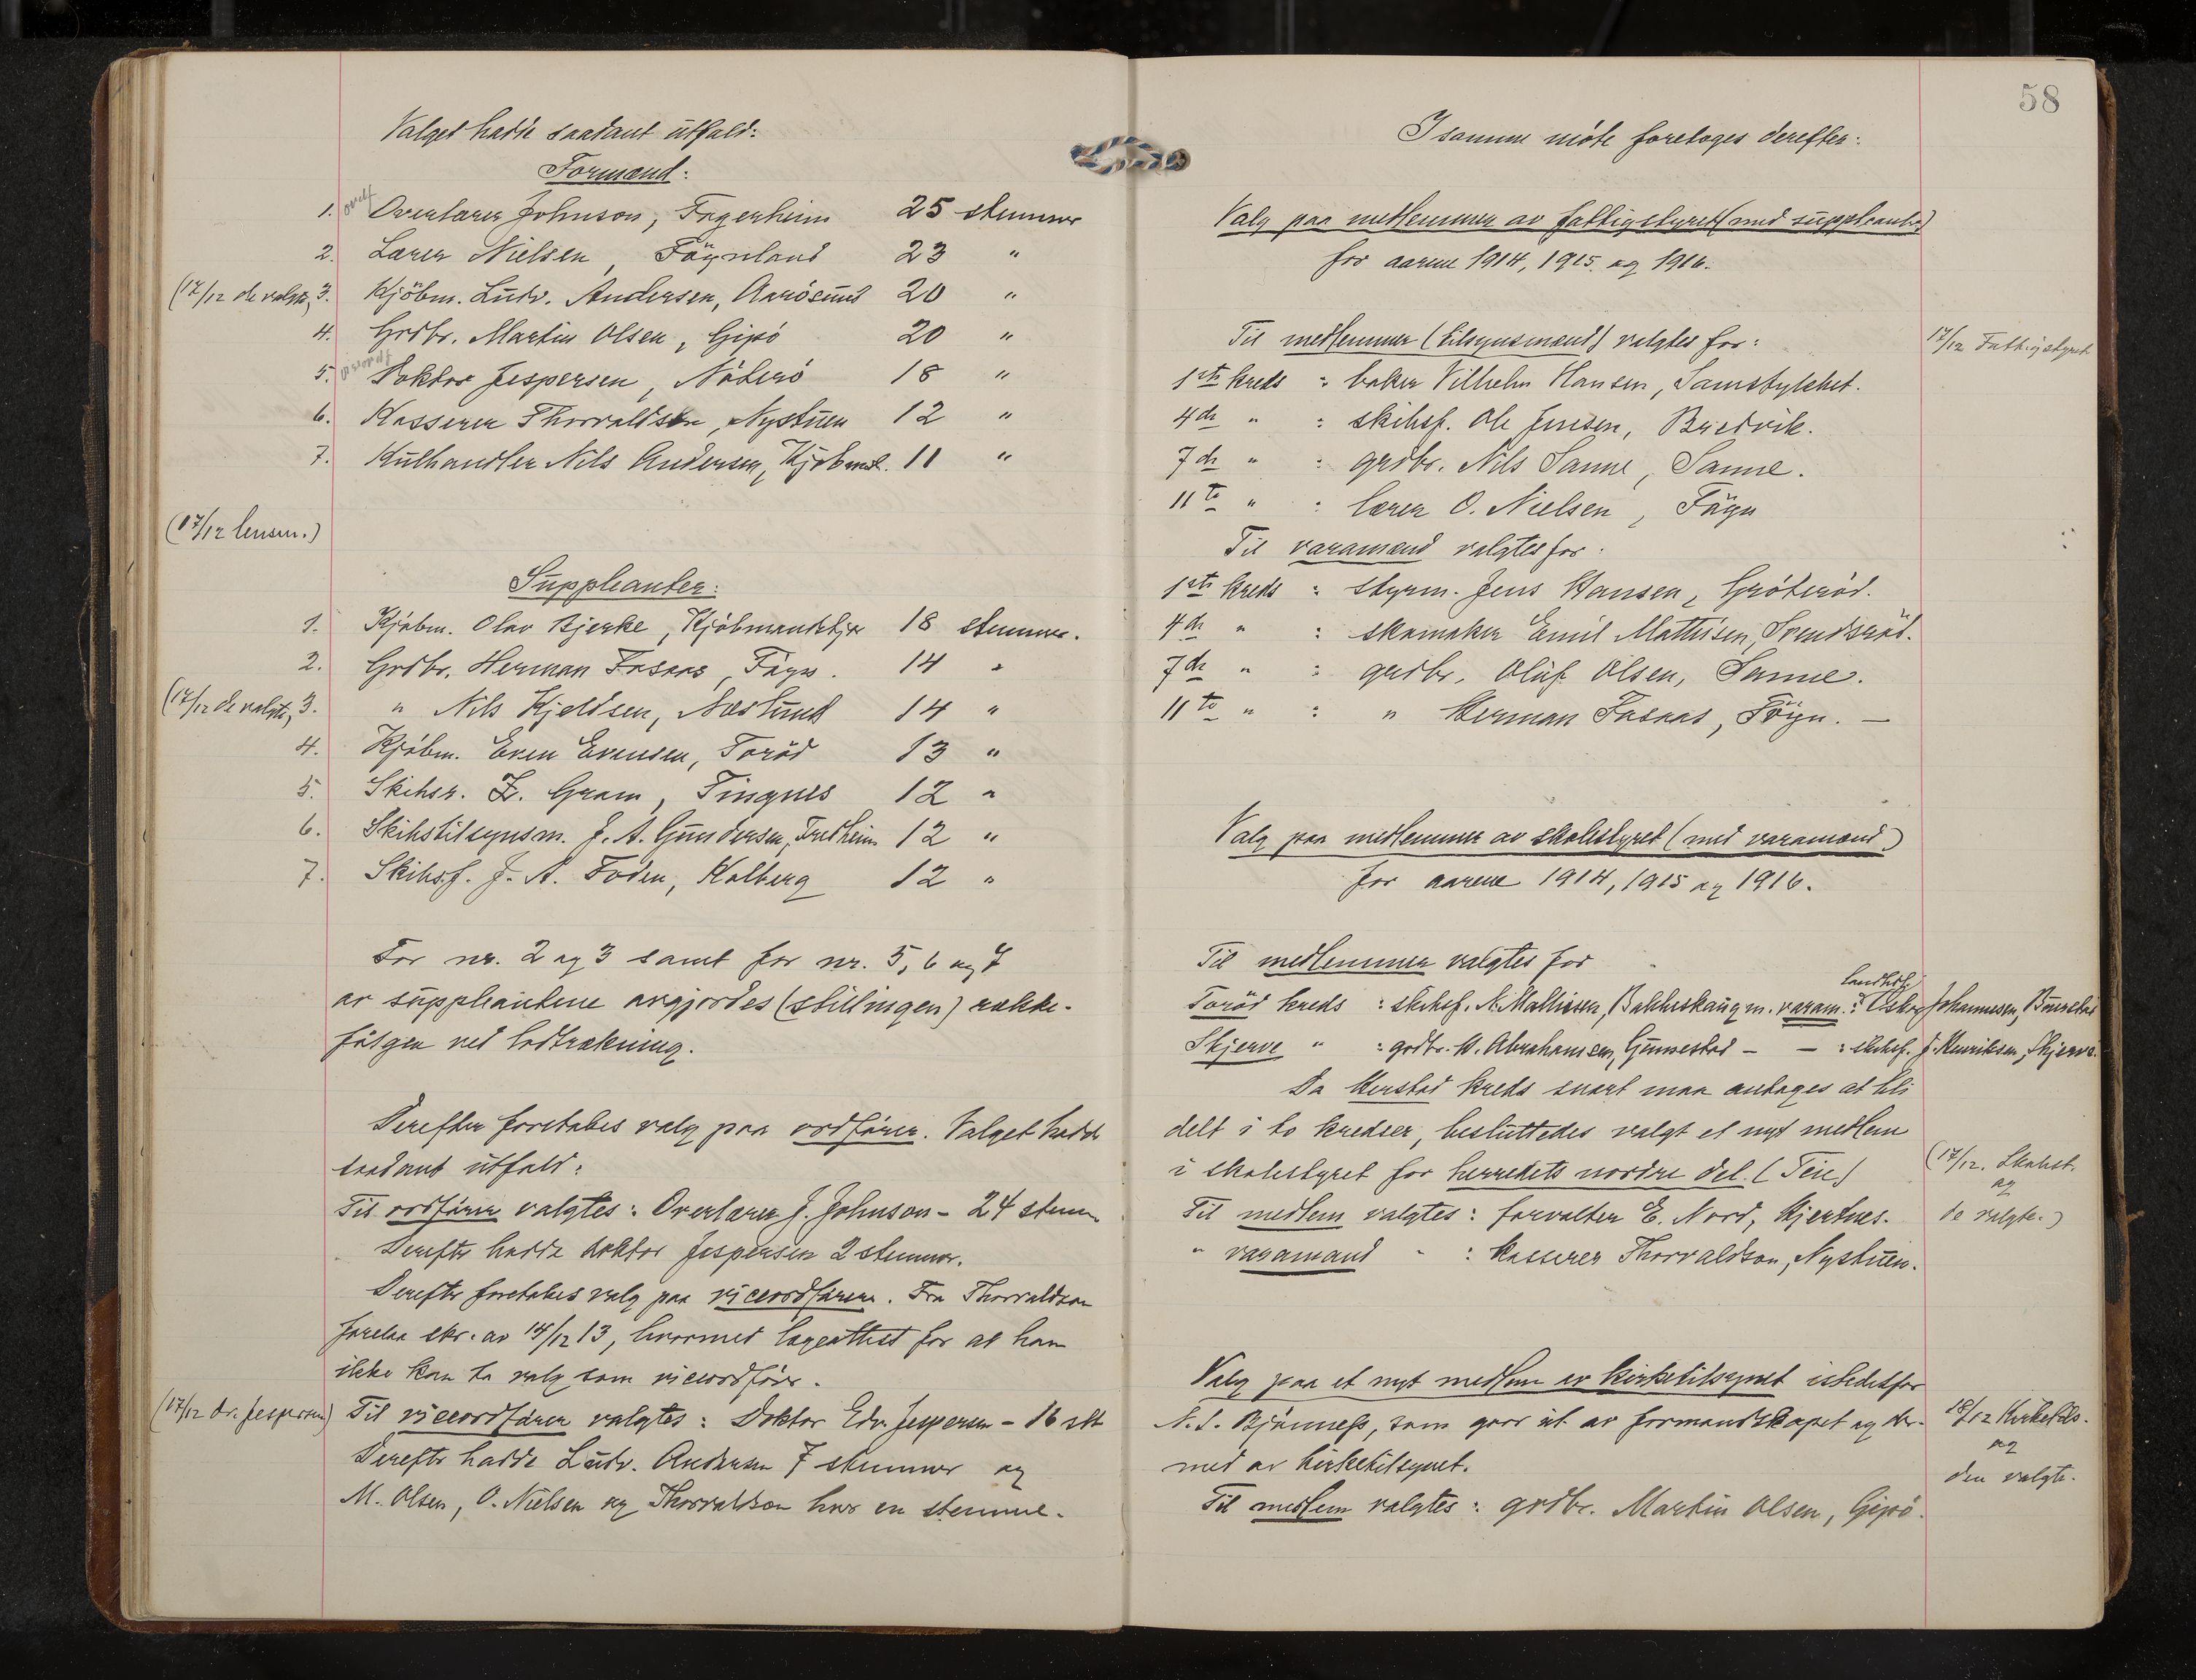 Valget hadde saadant utfald:
Formænd:
1. ordf Overlærer Johnson, Fagerheim 25 stemmer
2. Lærer Nielsen, Föynland 23 "
(17/12 de valgte) 3. Kjöbm. Ludv. Andersen, Aarösund 20 "
4. Grdbr. Martin Olsen, Gipö 20 "
5. viceordf Doktor Jespersen, Nöterö 18 "
6. Kasserer Thorvaldson, Nystuen 12 "
7. Kulhandler Nils Andersen, Kjöbmd. 11 "
(17/12 lensm.)
Suppleanter:
1. Kjöbm. Olav Bjerke, Kjöbmandskjær 18 stemmer.
2. Grdbr. Herman Fosaas, Föyn. 14 "
(17/12 de valgte) 3. " Nils Kjeldsen, Næslund 14 "
4. Kjöbm. Even Evensen, Toröd 13 "
5. Skibsr. Gram, Tingnes 12 "
6. Skibstilsynsm. J. A. Gundersen, Fredheim 12 "
7. Skibsf. J. A. Foden, Kolberg 12 "
For nr. 2 og 3 samt for nr. 5, 6 og 7
av suppleantene avgjordes (stillingen) række-
fölgen ved lodtrækning.
Derefter foretokes valg paa ordförer. Valget hadde
saadant utfald:
Til ordförer valgtes: Overlærer J. Johnson - 24 stemm.
Derefter hadde doktor Jespersen 2 stemmer.
Derefter foretokes valg paa viceordförer. Fra Thorvaldson
forelaa skr. av 14/12 13, hvormed lægeattest for at han
ikke kan ta valg som viceordförer.
(17/12 dr. Jespersen) Til viceordförer valgtes: Doktor Edv. Jespersen - 16 stt
Derefter hadde Ludv. Andersen 7 stemmer og
M. Olsen, O. Nielsen og Thorvaldson hver en stemme.
58
I samme möte foretoges derefter:
Valg paa medlemmer av fattigstyret (med suppleanter)
for aarene 1914, 1915 og 1916.
Til medlemmer (tilsynsmænd) valgtes for:
17/12 Fattigstyret
1ste kreds : baker Vilhelm Hansen, Samstykket.
4de " : skibsf. Ole Jensen, Buervik.
7de " : grdbr. Nils Sanne, Sanne.
11te " : lærer O. Nielsen, Föyn
Til varamænd valgtes for:
1ste kreds : styrm. Jens Hansen, Gröteröd.
4de " : skomaker Emil Mathisen, Svendsröd.
7de " : grdbr. Oluf Olsen, Sanne.
11te " : " Herman Fosaas, Föyn. —
Valg paa medlemmer av skolestyret (med varamænd)
for aarene 1914, 1915 og 1916.
Til medlemmer valgtes for
landhdl.
Toröd kreds : skibsf. N. Mathisen, Bakkeskaug m. varam.: Oskar Johannessen, Buerstad
Skjerve " : grdbr. H. Abrahamsen, Gunnestad - — : skibsf. J. Henriksen, Skjerve.
Da Herstad kreds snart maa antages at bli
delt i to kredser, besluttedes valgt et nyt medlem
i skolestyret for herredets nordre del. (Teie)
(17/12. Skolest.
og
de valgte.)
Til medlem valgtes: forvalter E. Nord, Hjertnes.
" varamand " : kasserer Thorvaldson, Nystuen.
Valg paa et nyt medlem av kirketilsynet istedetfor
N. S. Bjönness, som gaar ut av formandskapet og der-
med av kirketilsynet.
18/12 Kirketils.
og
den valgte.
Til medlem valgtes: grdbr. Martin Olsen, Gipö.